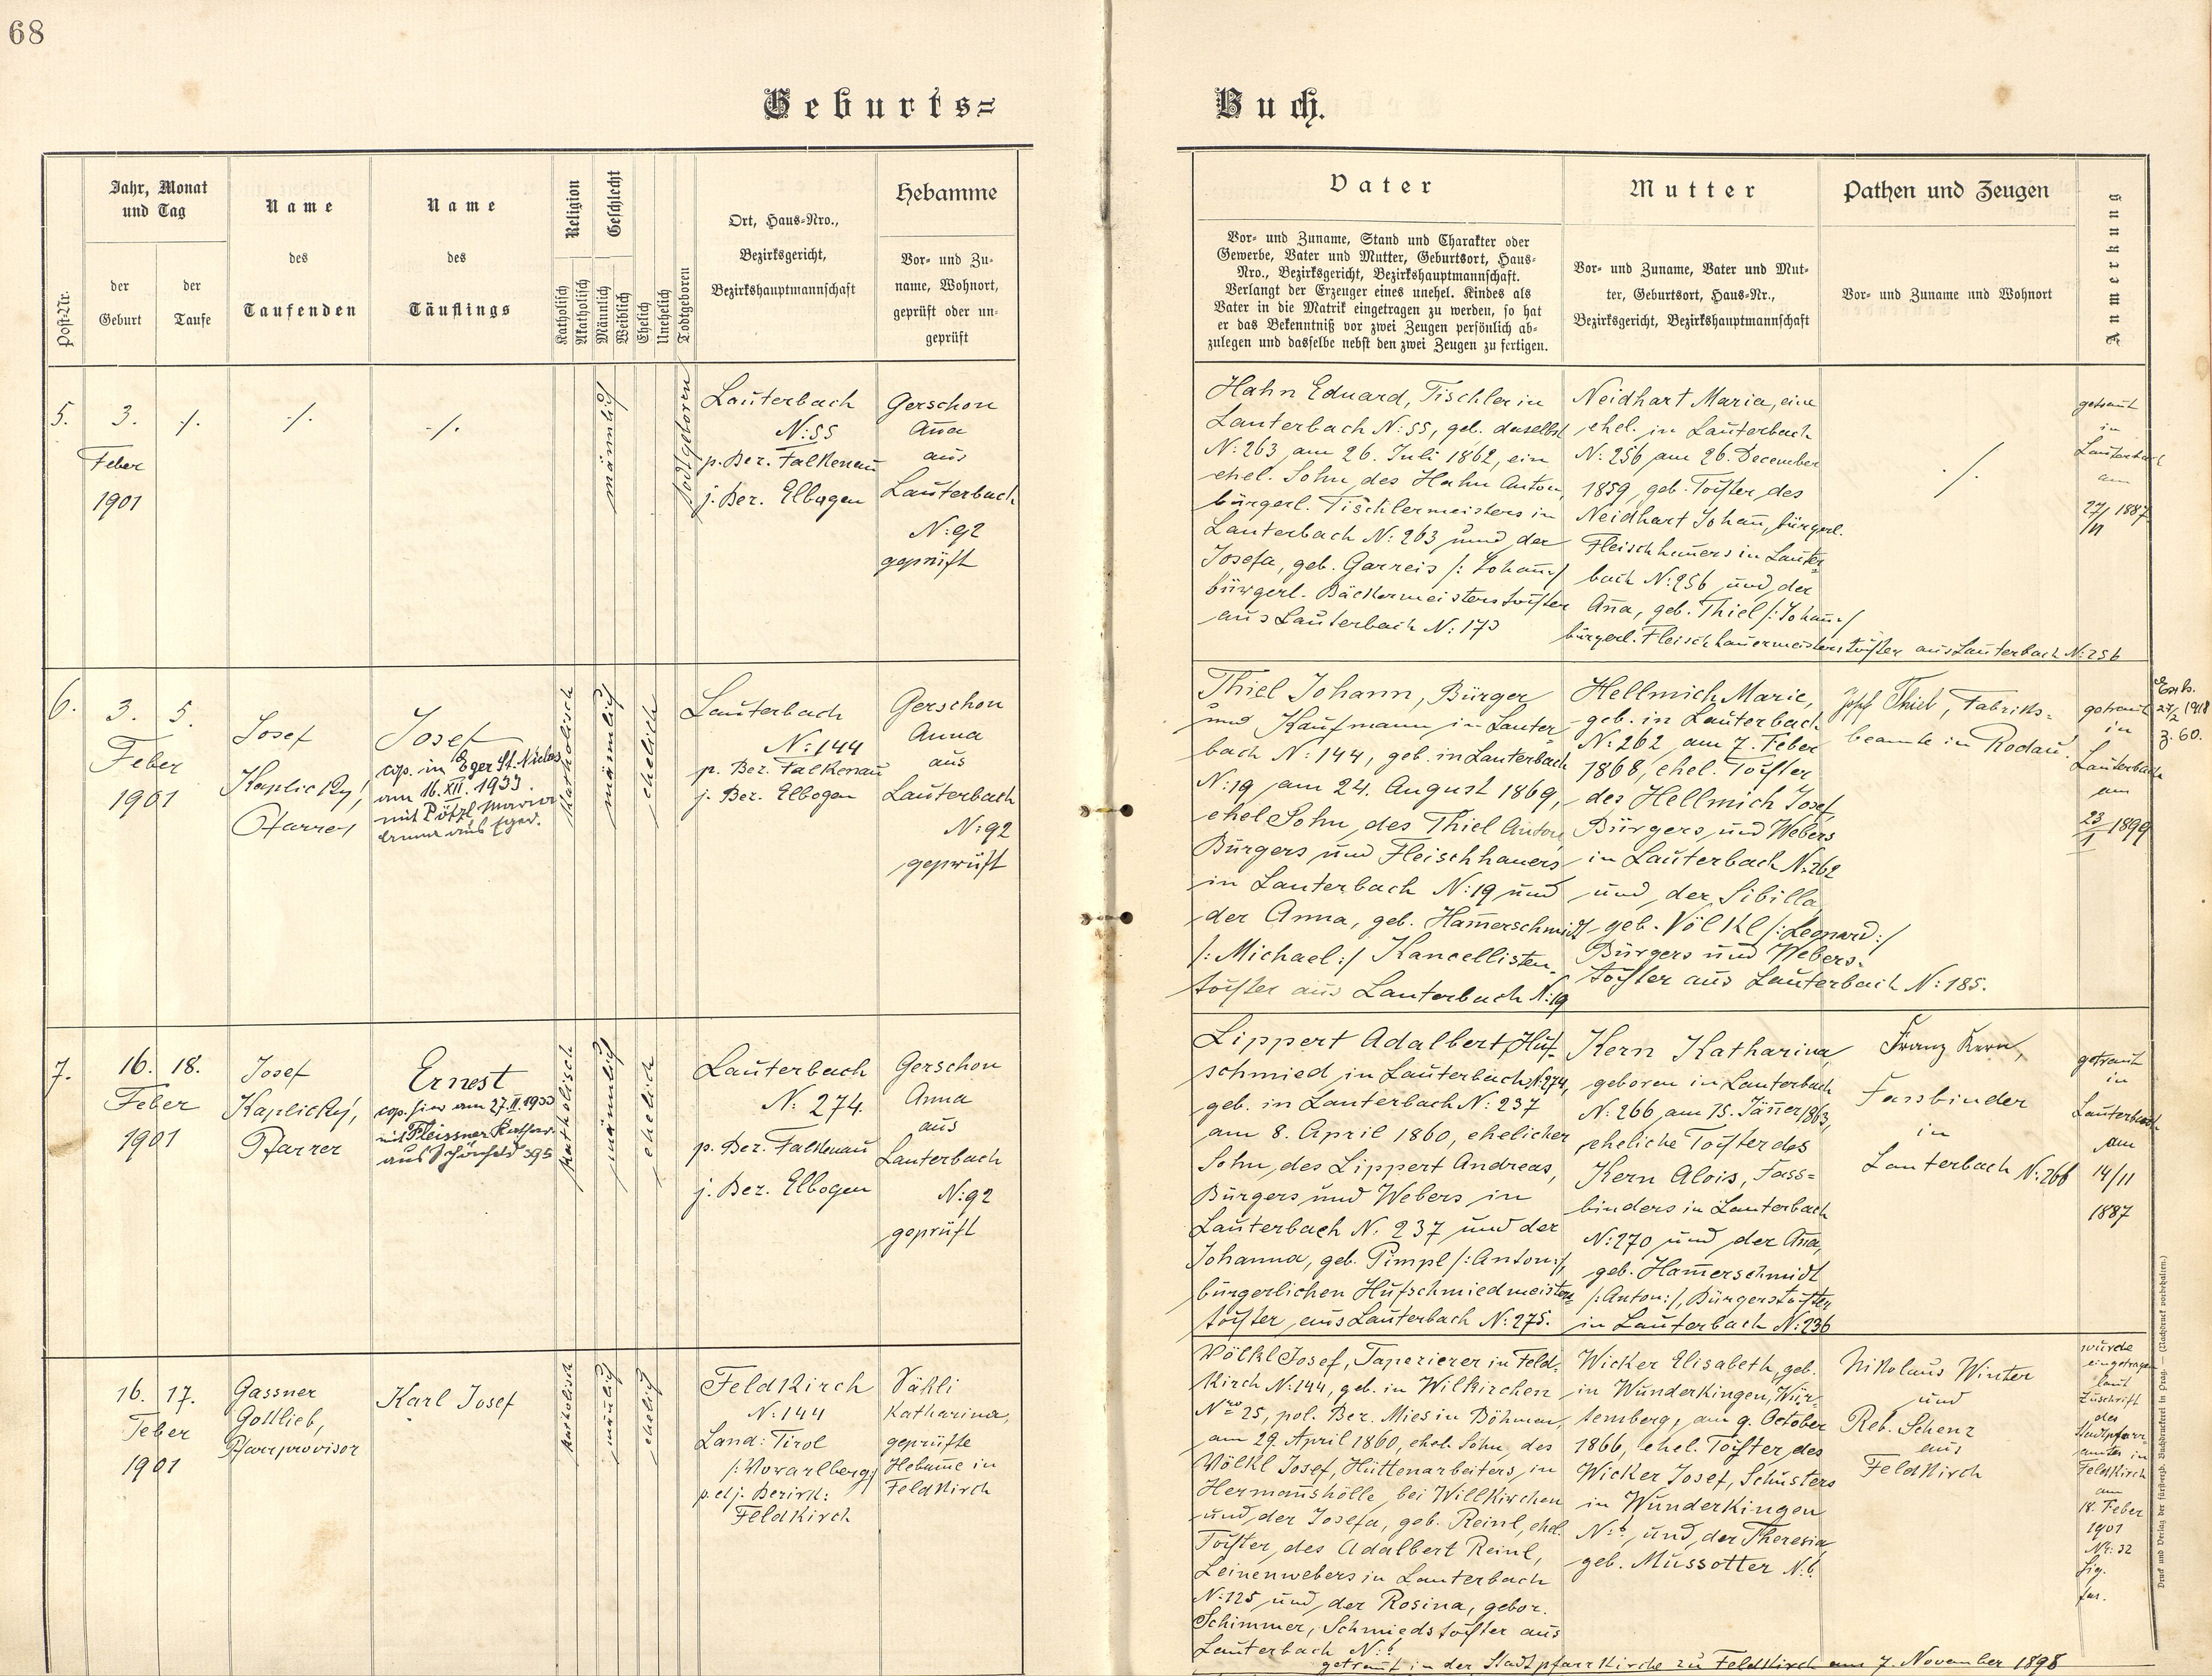 68
Geburts=
Buch.
Post-Nr.
Jahr, Monat
und Tag
der
Geburt
der
Taufe
Name
des
Taufenden
Name
des
Täuflings
Religion
Katholisch
Akatholisch
Geschlecht
Männlich
Weiblich
Ehelich
Unehelich
Todtgeboren
Ort, Haus-Nro.,
Bezirksgericht,
Bezirkshauptmannschaft
Hebamme
Vor- und Zu-
name, Wohnort,
geprüft oder un-
geprüft
Vater
Vor- und Zuname, Stand und Charakter oder
Gewerbe, Vater und Mutter, Geburtsort, Haus-
Nro., Bezirksgericht, Bezirkshauptmannschaft.
Verlangt der Erzeuger eines unehel. Kindes als
Vater in die Matrik eingetragen zu werden, so hat
er das Bekenntniß vor zwei Zeugen persönlich ab-
zulegen und dasselbe nebst den zwei Zeugen zu fertigen.
Mutter
Vor- und Zuname, Vater und Mut-
ter, Geburtsort, Haus-Nr.,
Bezirksgericht, Bezirkshauptmannschaft
Pathen und Zeugen
Vor- und Zuname und Wohnort
Anmerkung
5.
3.
Feber
1901
./.
./.
./.
männlich
todtgeboren
Lauterbach
N:55
p. Bez. Falkenau
j. Bez. Elbogen
Gerschon
Ana
aus
Lauterbach
N:92
geprüft
Hahn Eduard, Tischler in
Lauterbach N:55, geb. daselbst
N:263 am 26. Juli 1862, ein
ehel. Sohn des Hahn Anton,
bürgerl. Tischlermeisters in
Lauterbach N:263 und der
Josefa, geb. Garreis /: Johann :/
bürgerl. Bäckermeisterstochter
aus Lauterbach N:173
Neidhart Maria, eine
ehel. in Lauterbach
N:256 am 26. December
1859 geb. Tochter des
Neidhart Johan, bürgerl.
Fleischhauers in Lauter=
bach N:256 und der
Ana, geb. Thiel /: Johann :/
bürgerl. Fleischhauermeisterstochter aus Lauterbach N:256
./.
getraut
in
Lauterbach
am
27/ 1887
/11
6.
3. 5.
Feber
1901
Josef
Kaplický,
Pfarrer
Josef
cop. in Eger St. Niclas
am 16.XII.1933
mit Pötzl Maria
aus Eger.
katholisch
männlich
ehelich
Lauterbach
N:144
p. Bez. Falkenau
j. Bez. Elbogen
Gerschon
Anna
aus
Lauterbach
N:92
geprüft
Thiel Johann, Bürger
und Kaufmann in Lauter
bach N:144, geb. in Lauterbach
N:19 am 24. August 1869,
ehel Sohn des Thiel Anton,
Bürgers und Fleischhauers
in Lauterbach N:19 und
der Anna, geb. Hamerschmidt
/: Michael :/ Kancellisten-
tochter aus Lauterbach N:19
Hellmich Marie,
geb. in Lauterbach
N:262 am 7. Feber
1868, ehel. Tochter
des Hellmich Josef,
Bürgers und Webers
in Lauterbach N:262
und der Sibilla
geb. Völkl /: Leonard :/
Bürgers und Webers-
tochter aus Lauterbach N:185.
Josef Thiel, Fabriks-
beamte in Rodau.
getraut
in
Lauterbach
am
23/ 1899
1
27/2 1918
Z. 60.
7.
16. 18.
Feber
1901
Josef
Kaplický,
Pfarrer
Ernest
cop. hier am 27.II.1933
mit Fleissner Kathar.
aus Schönfeld 395
katholisch
männlich
ehelich
Lauterbach
N: 274
p. Bez. Falkenau
j. Bez. Elbogen
Gerschon
Anna
aus
Lauterbach
N:92
geprüft
Lippert Adalbert, Huf-
schmied in Lauterbach N:274,
geb. in Lauterbach N:237
am 8. April 1860, ehelicher
Sohn des Lippert Andreas,
Bürgers und Webers in
Lauterbach N. 237 und der
Johanna, geb. Pimpl /: Anton :/,
bürgerlichen Hufschmiedmeisters
tochter aus Lauterbach N:275.
Kern Katharina,
geboren in Lauterbach
N:266 am 15. Jäner 1863,
eheliche Tochter des
Kern Alois, Fass=
binders in Lauterbach
N:270 und der Ana,
geb. Hamerschmidt
/: Anton :/, Bürgerstochter
in Lauterbach N:236
Franz Kern,
Fassbinder
in
Lauterbach N:266
getraut
in
Lauterbach
am
14/11
1887
16. 17.
Feber
1901
Gassner
Gottlieb,
Pfarrprovisor
Karl Josef
katholisch
männlich
ehelich
Feldkirch
N:144
Land: Tirol
/: Vorarlberg :/
p. etj. Bezirk:
Feldkirch
Katharina,
geprüfte
Hebame in
Feldkirch
Völkl Josef, Tapezierer in Feld-
kirch N:144, geb. in Wilkirchen
Nro 25, pol. Bez. Mies in Böhmen,
am 29. April 1860, ehel. Sohn des
Völkl Josef, Hüttenarbeiters in
Hermanshölle bei Willkirchen
und der Josefa, geb. Reinl, ehel.
Tochter des Adalbert Reinl,
Leinenwebers in Lauterbach
N:125 und der Rosina, gebor.
Schimmer, Schmiedstochter aus
Lauterbach N:?
getraut in der Stadtpfarrkirche zu Feldkirch am 7. November 1898
Wicker Elisabeth, geb.
in Wunderkingen, Wür-
temberg, am 9. October
1866, ehel. Tochter des
Wicker Josef, Schusters
in Wunderkingen
N:? und der Theresia
geb. Mussotter N:?
Nikolaus Winter
und
Reb. Schenz
aus
Feldkirch
wurde
eingetragen
laut
Zuschrift
des
Stadtpfarr-
amtes in
Feldkirch
am
18. Feber
1901
Nr: 32
Druck und Verlag der fürsterzb. Buchdruckerei in Prag. — (Nachdruck vorbehalten.)